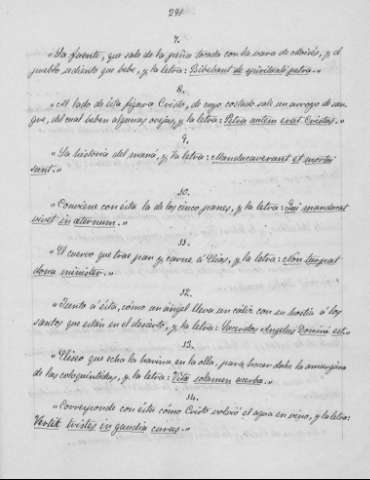 291
7.
"La fuente, que sale de la peña tocada con la vara de Moisés, y el
pueblo sediento que bebe, y la letra: Bibebant de spirituali petra."
8.
"Al lado de ésta figura Cristo, de cuyo costado sale un arroyo de san-
gre, del cual beben algunas ovejas, y la letra: Petra autem erat Cristus."
9.
"La historia del maná, y la letra: Manducaverunt et mortui
sunt."
10.
"Conviene con ésta la de los cinco panes, y la letra: Qui manducat
vivet in æternum."
11.
"El cuervo que trae pan y carne á Elías, y la letra: Non
dona minister."
12.
"Junto á ésta, cómo un ángel lleva un cáliz con su hostia á los
santos que están en el desierto, y la letra: Sacerdos Angelus Domini est."
13.
"Eliseo que echa la harina en la olla, para hacer dulce la amargura
de las coloquíntidas, y la letra: Vita solamen acerba."
14.
"Corresponde con ésta cómo Cristo volvió el agua en vino, y la letra:
Vertit tristes in gaudia curas."